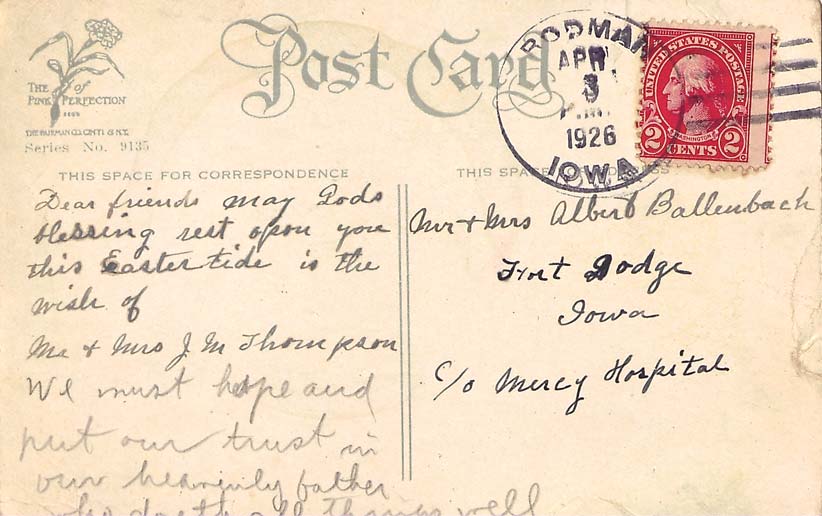 Post Card
THE
of
PINK PERFECTION
THE FAIRMAN CO. CINTI & N.Y.
Series No. 9135
RODMAN
APR
3
P.M.
1926
IOWA
UNITED STATES POSTAGE
WASHINGTON
2 CENTS 2
THIS SPACE FOR CORRESPONDENCE
Dear friends may Gods
blessing rest upon you
this Easter tide is the
wish of
Mr & Mrs J M Thompson
We must hope and
put our trust in
our heavenly father
who doeth all things well
THIS SPACE
Mr & Mrs Albert Ballenbach
Fort Dodge
Iowa
c/o Mercy Hospital